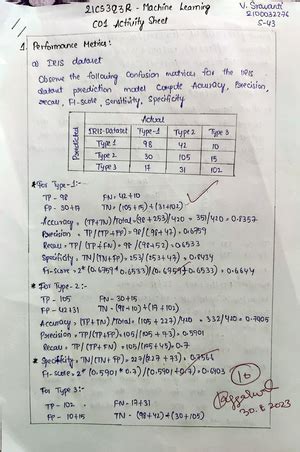 21CS3Q3R - Machine Learning
CO1 Activity Sheet
V. Sravanti
2100032276
S-43
1. Performance Metrics:
a) IRIS dataset
Observe the following Confusion matrices for the IRIS
dataset prediction model Compute Accuracy, Precision,
recall, F1-score, Sensitivity, Specificity
Actual
Predicted
IRIS-Dataset Type-1 Type 2 Type 3
Type 1 98 42 10
Type 2 30 105 15
Type 3 17 31 102
* For Type-1:-
TP - 98 FN = 42+10
FP - 30+17 TN = (105+15)+(31+102)
Accuracy = (TP+TN)/Total = (98+253)/420 = 351/420 = 0.8357
Precision = TP/(TP+FP) = 98/(98+47) = 0.6759
Recall = TP/(TP+FN) = 98/(98+52) = 0.6533
Specificity = TN/(TN+FP) = 253/(253+47) = 0.8434
F1-score = 2*(0.6759*0.6533)/(0.6759+0.6533) = 0.6644
* For Type-2:-
TP - 105 FN - 30+15
FP - 42+31 TN - (98+10)+(17+102)
Accuracy = (TP+TN)/Total = (105+227)/420 = 332/420 = 0.7905
Precision = TP/(TP+FP) = 105/(105+73) = 0.5901
Recall = TP/(TP+FN) = 105/(105+45) = 0.7
* Specificity = TN/(TN+FP) = 227/(227+73) = 0.7566
F1-score = 2*(0.5901*0.7)/(0.5901+0.7) = 0.6403
For Type 3:-
TP - 102 FN - 17+31
FP - 10+15 TN - (98+42)+(30+105)
10
30.8.2023